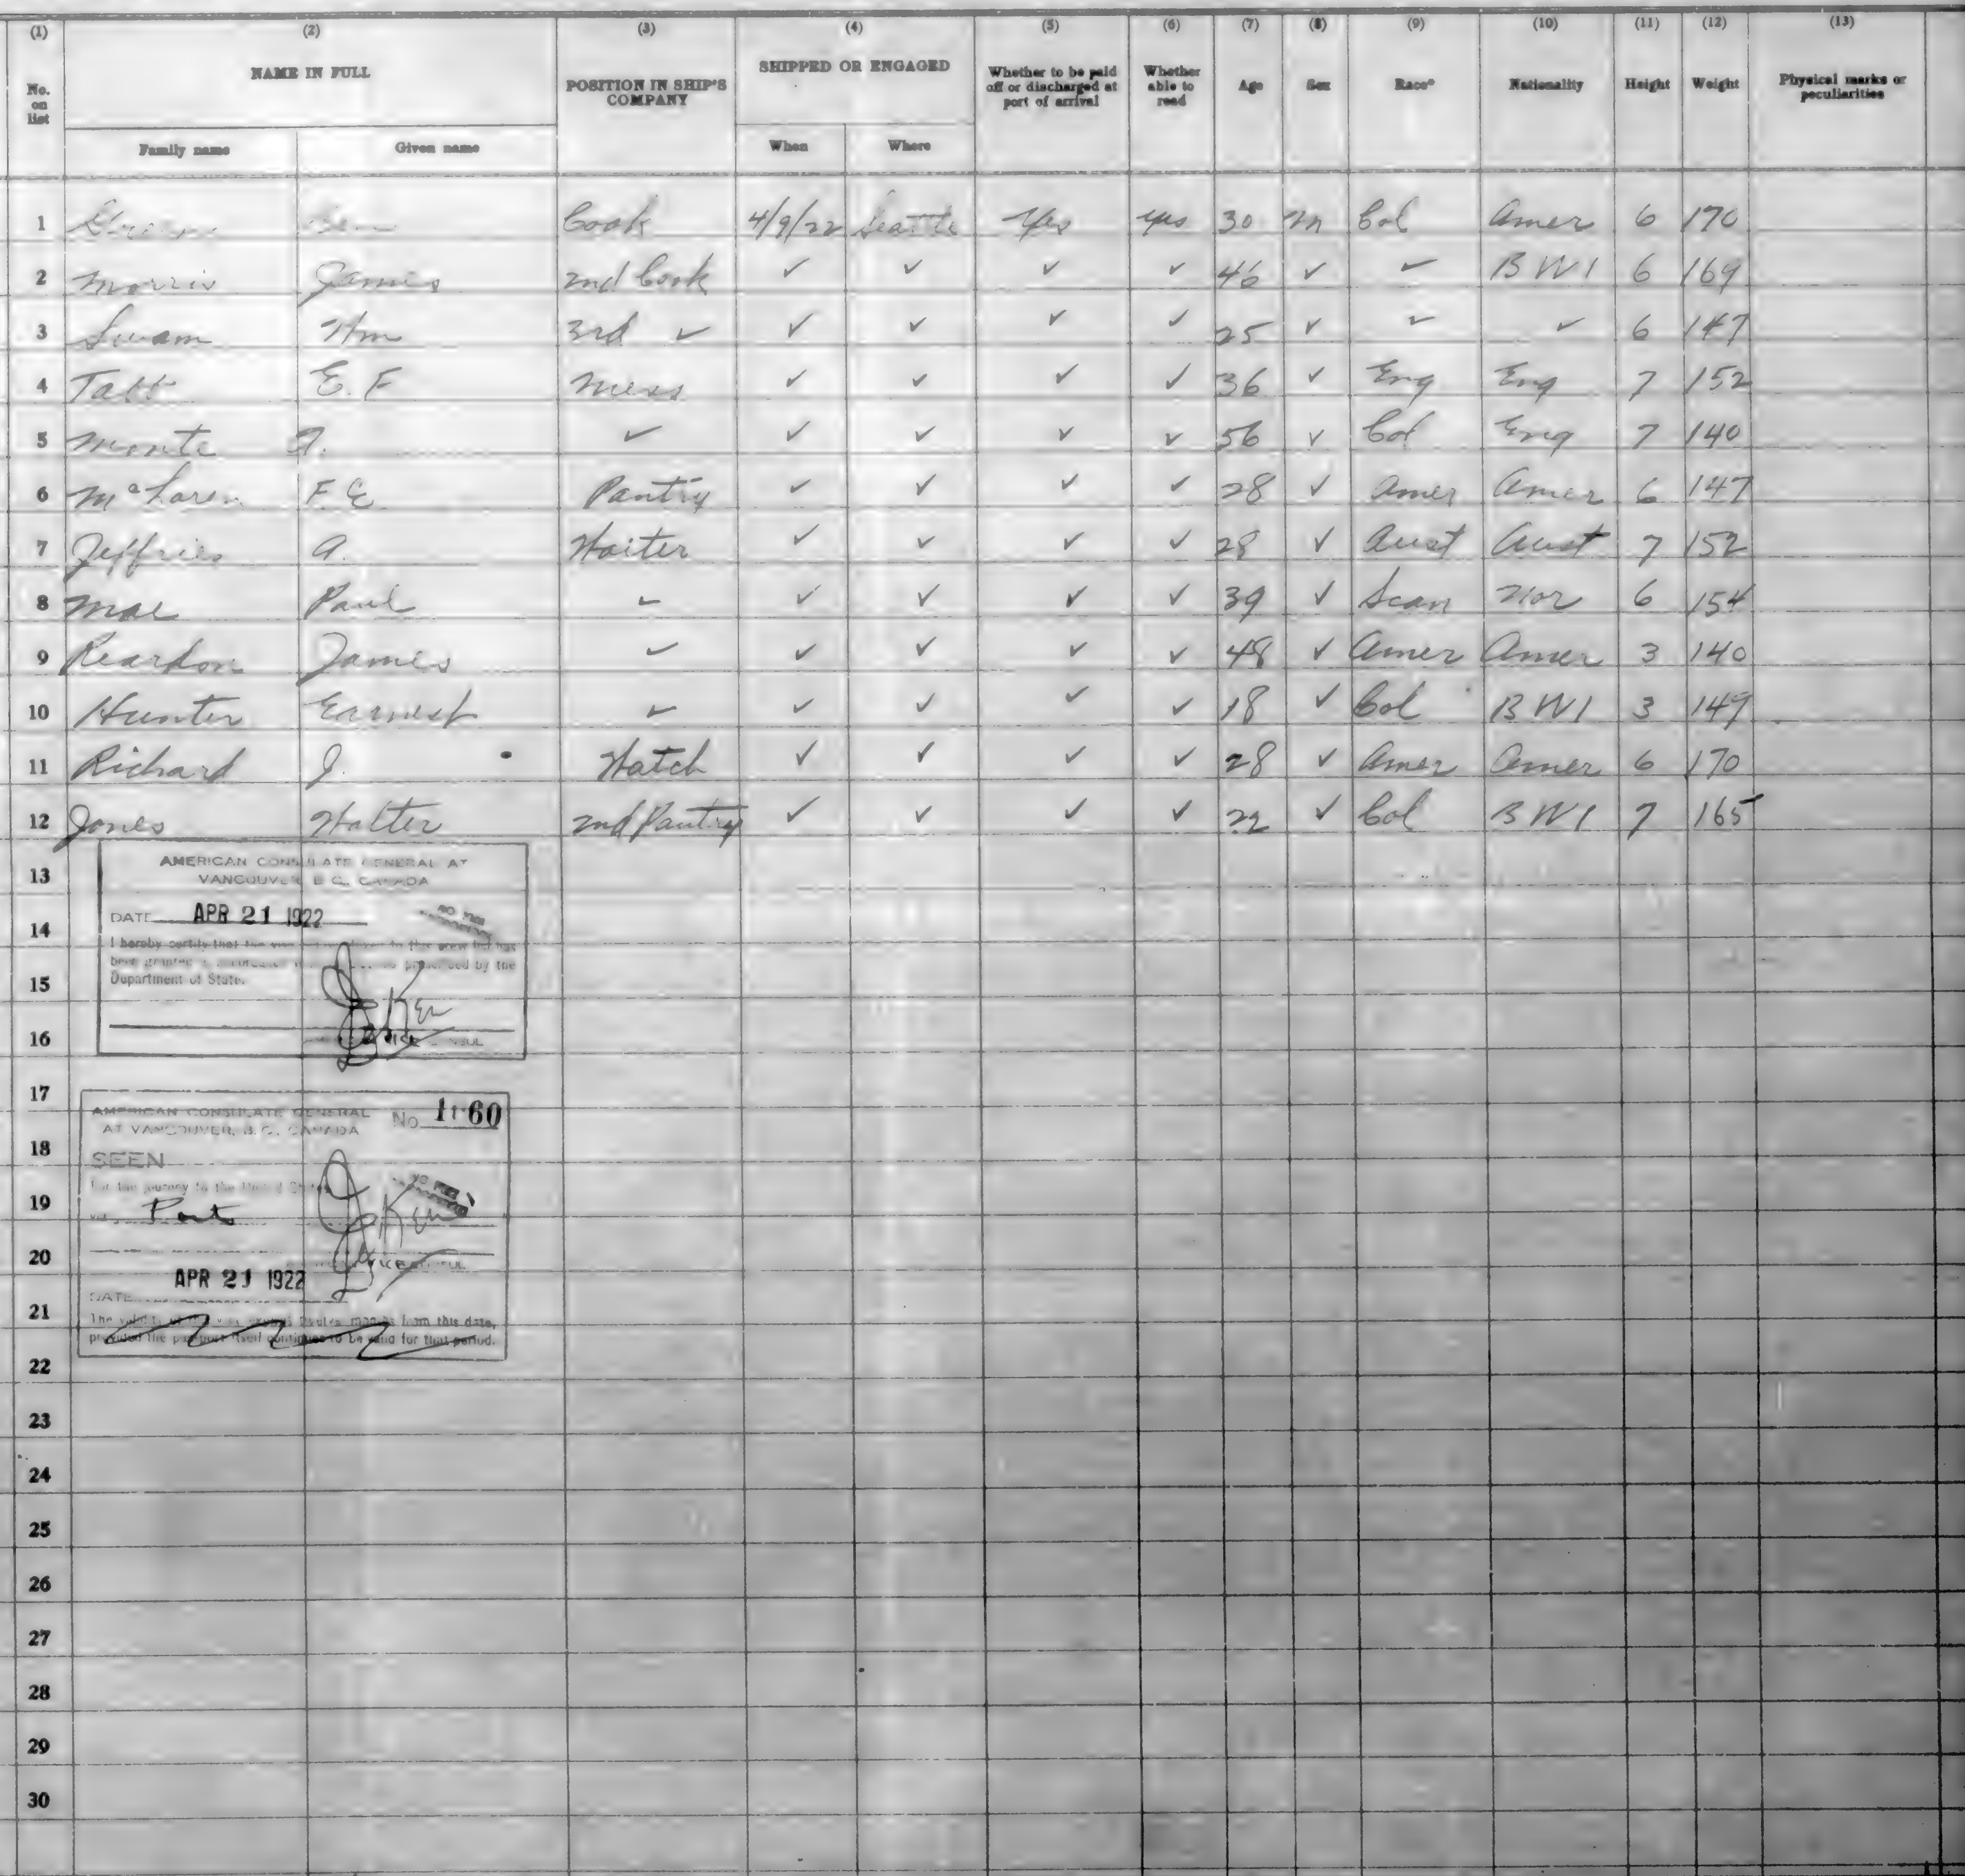 (1) (2) (3) (4) (5) (6) (7) (8) (9) (10) (11) (12) (13)
No. on list NAME IN FULL POSITION IN SHIP'S COMPANY SHIPPED OR ENGAGED Whether to be paid off or discharged at port of arrival Whether able to read Age Sex Race* Nationality Height Weight Physical marks or peculiarities
Family name Given name When Where
1 Ben Cook 4/9/22 Seattle Yes yes 30 m Col Amer 6 170
2 Morris James 2nd Cook ✓ ✓ ✓ ✓ 46 ✓ ✓ B W I 6 169
3 Swam Wm 3rd ✓ ✓ ✓ ✓ ✓ 25 ✓ ✓ ✓ 6 147
4 E. F Mess ✓ ✓ ✓ ✓ 36 ✓ Eng Eng 7 152
5 Monte A. ✓ ✓ ✓ ✓ ✓ 56 ✓ Col Eng 7 140
6 McLaren F. E. Pantry ✓ ✓ ✓ ✓ 28 ✓ Amer Amer 6 147
7 Jeffries A. Waiter ✓ ✓ ✓ ✓ 28 ✓ Aust Aust 7 152
8 Mae Paul ✓ ✓ ✓ ✓ ✓ 39 ✓ Scan Nor 6 154
9 Reardon James ✓ ✓ ✓ ✓ ✓ 48 ✓ Amer Amer 3 140
10 Hunter Earnest ✓ ✓ ✓ ✓ ✓ 18 ✓ Col B W I 3 149
11 Richard J. Watch ✓ ✓ ✓ ✓ 28 ✓ Amer Amer 6 170
12 Jones Walter 2nd Pantry ✓ ✓ ✓ ✓ 22 ✓ Col B W I 7 165
AMERICAN CONSULATE GENERAL AT
13
VANCOUVER, B. C., CANADA
DATE APR 21 1922
14
I hereby certify that the to this crew list has
been granted in prescribed by the
15
Department of State.
16
VICE CONSUL
17
AMERICAN CONSULATE GENERAL No. 1160
AT VANCOUVER, B. C., CANADA
18
SEEN
For the journey to the United States
19
Ports
20
VICE CONSUL
APR 21 1922
DATE
21
The validity of this visa expires twelve months from this date,
provided the passport itself continues to be valid for that period.
22
23
24
25
26
27
28
29
30